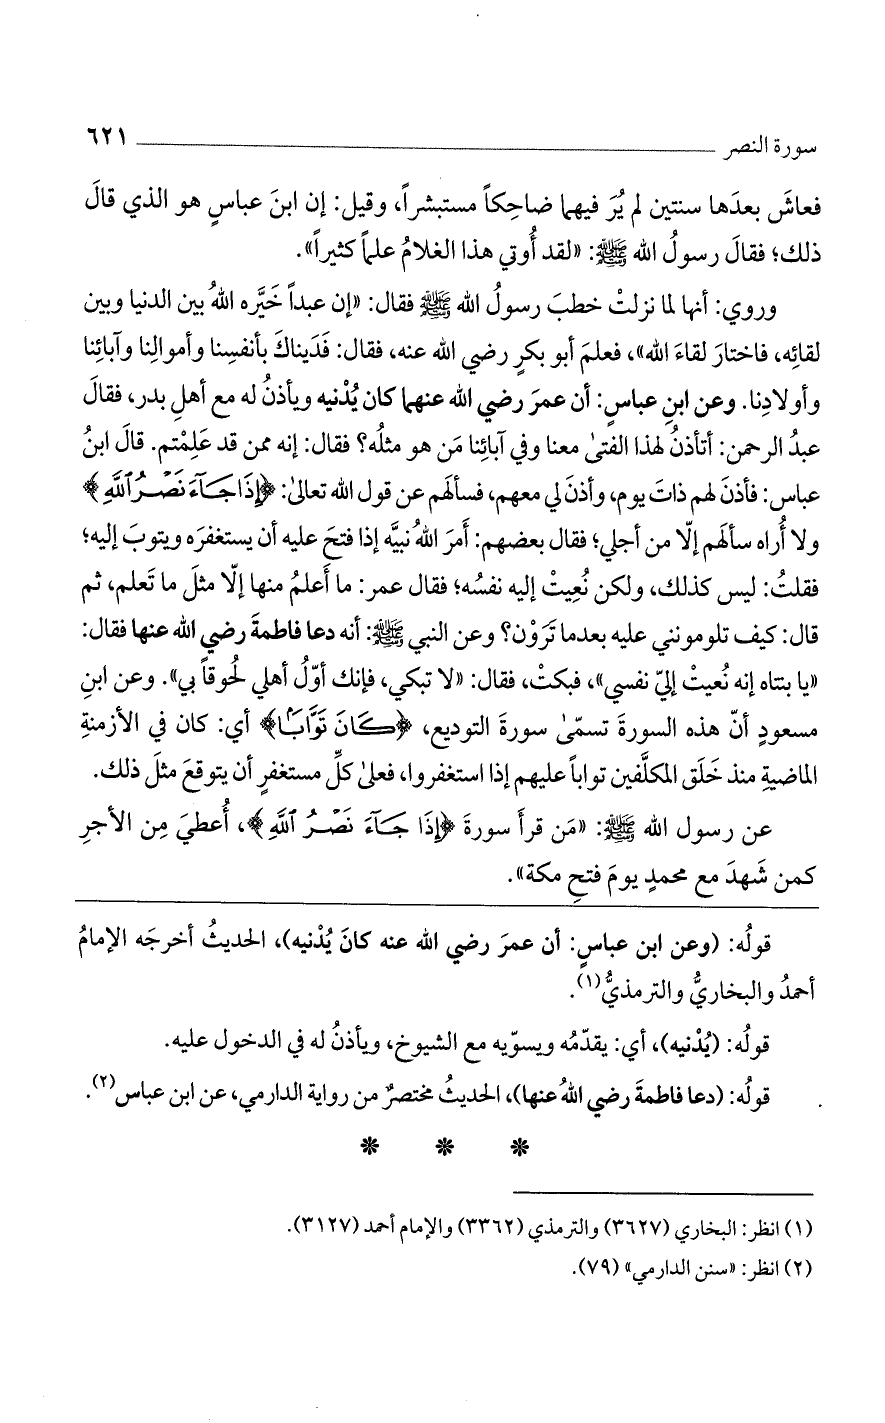 سورة النصر ٦٢١
فعاشَ بعدَها سنتين لم يُرَ فيهما ضاحِكاً مستبشراً، وقيل: إن ابنَ عباسٍ هو الذي قالَ
ذلك؛ فقالَ رسولُ الله ﷺ: «لقد أُوتي هذا الغلامُ علماً كثيراً».
وروي: أنها لما نزلتْ خطبَ رسولُ الله ﷺ فقال: «إن عبداً خَيَّره اللهُ بين الدنيا وبين
لقائِه، فاختارَ لقاءَ الله»، فعلمَ أبو بكرٍ رضي الله عنه، فقال: فَدَيناكَ بأنفسِنا وأموالِنا وآبائِنا
وأولادِنا. وعن ابنِ عباسٍ: أن عمرَ رضي الله عنهما كان يُدْنيه ويأذنُ له مع أهلِ بدر، فقالَ
عبدُ الرحمن: أتأذنُ لهذا الفتىٰ معنا وفي آبائِنا مَن هو مثلُه؟ فقال: إنه ممن قد عَلِمْتم. قال ابنُ
عباس: فأذنَ لهم ذاتَ يوم، وأذنَ لي معهم، فسألهَم عن قول الله تعالىٰ: ﴿إِذَا جَآءَ نَصْرُ ٱللَّهِ﴾
ولا أُراه سألهَم إلّا من أجلي؛ فقال بعضهم: أمَرَ اللهُ نبيَّه إذا فتحَ عليه أن يستغفرَه ويتوبَ إليه؛
فقلتُ: ليس كذلك، ولكن نُعِيتْ إليه نفسُه؛ فقال عمر: ما أَعلمُ منها إلّا مثلَ ما تَعلم، ثم
قال: كيف تلومونني عليه بعدما تَرَوْن؟ وعن النبي ﷺ: أنه دعا فاطمةَ رضي الله عنها فقال:
«يا بنتاه إنه نُعيتْ إليّ نفسي»، فبكتْ، فقال: «لا تبكي، فإنك أوّلُ أهلي لُحوقاً بي». وعن ابنِ
مسعودٍ أنّ هذه السورةَ تسمّىٰ سورةَ التوديع، ﴿كَانَ تَوَّابًا﴾ أي: كان في الأزمنةِ
الماضيةِ منذ خَلَق المكلَّفين تواباً عليهم إذا استغفروا، فعلىٰ كلِّ مستغفرٍ أن يتوقعَ مثلَ ذلك.
عن رسول الله ﷺ: «مَن قرأَ سورةَ ﴿إِذَا جَآءَ نَصْرُ ٱللَّهِ﴾، أُعطيَ مِن الأجرِ
كمن شَهِدَ مع محمدٍ يومَ فتحِ مكة».
قولُه: (وعن ابن عباسٍ: أن عمرَ رضي الله عنه كانَ يُدْنيه)، الحديثُ أخرجَه الإمامُ
أحمدُ والبخاريُّ والترمذيُّ(١).
قولُه: (يُدْنيه)، أي: يقدّمُه ويسوّيه مع الشيوخ، ويأذنُ له في الدخول عليه.
قولُه: (دعا فاطمةَ رضي اللهُ عنها)، الحديثُ مختصرٌ من رواية الدارمي، عن ابن عباس(٢).
(١) انظر: البخاري (٣٦٢٧) والترمذي (٣٣٦٢) والإمام أحمد (٣١٢٧).
(٢) انظر: «سنن الدارمي» (٧٩).